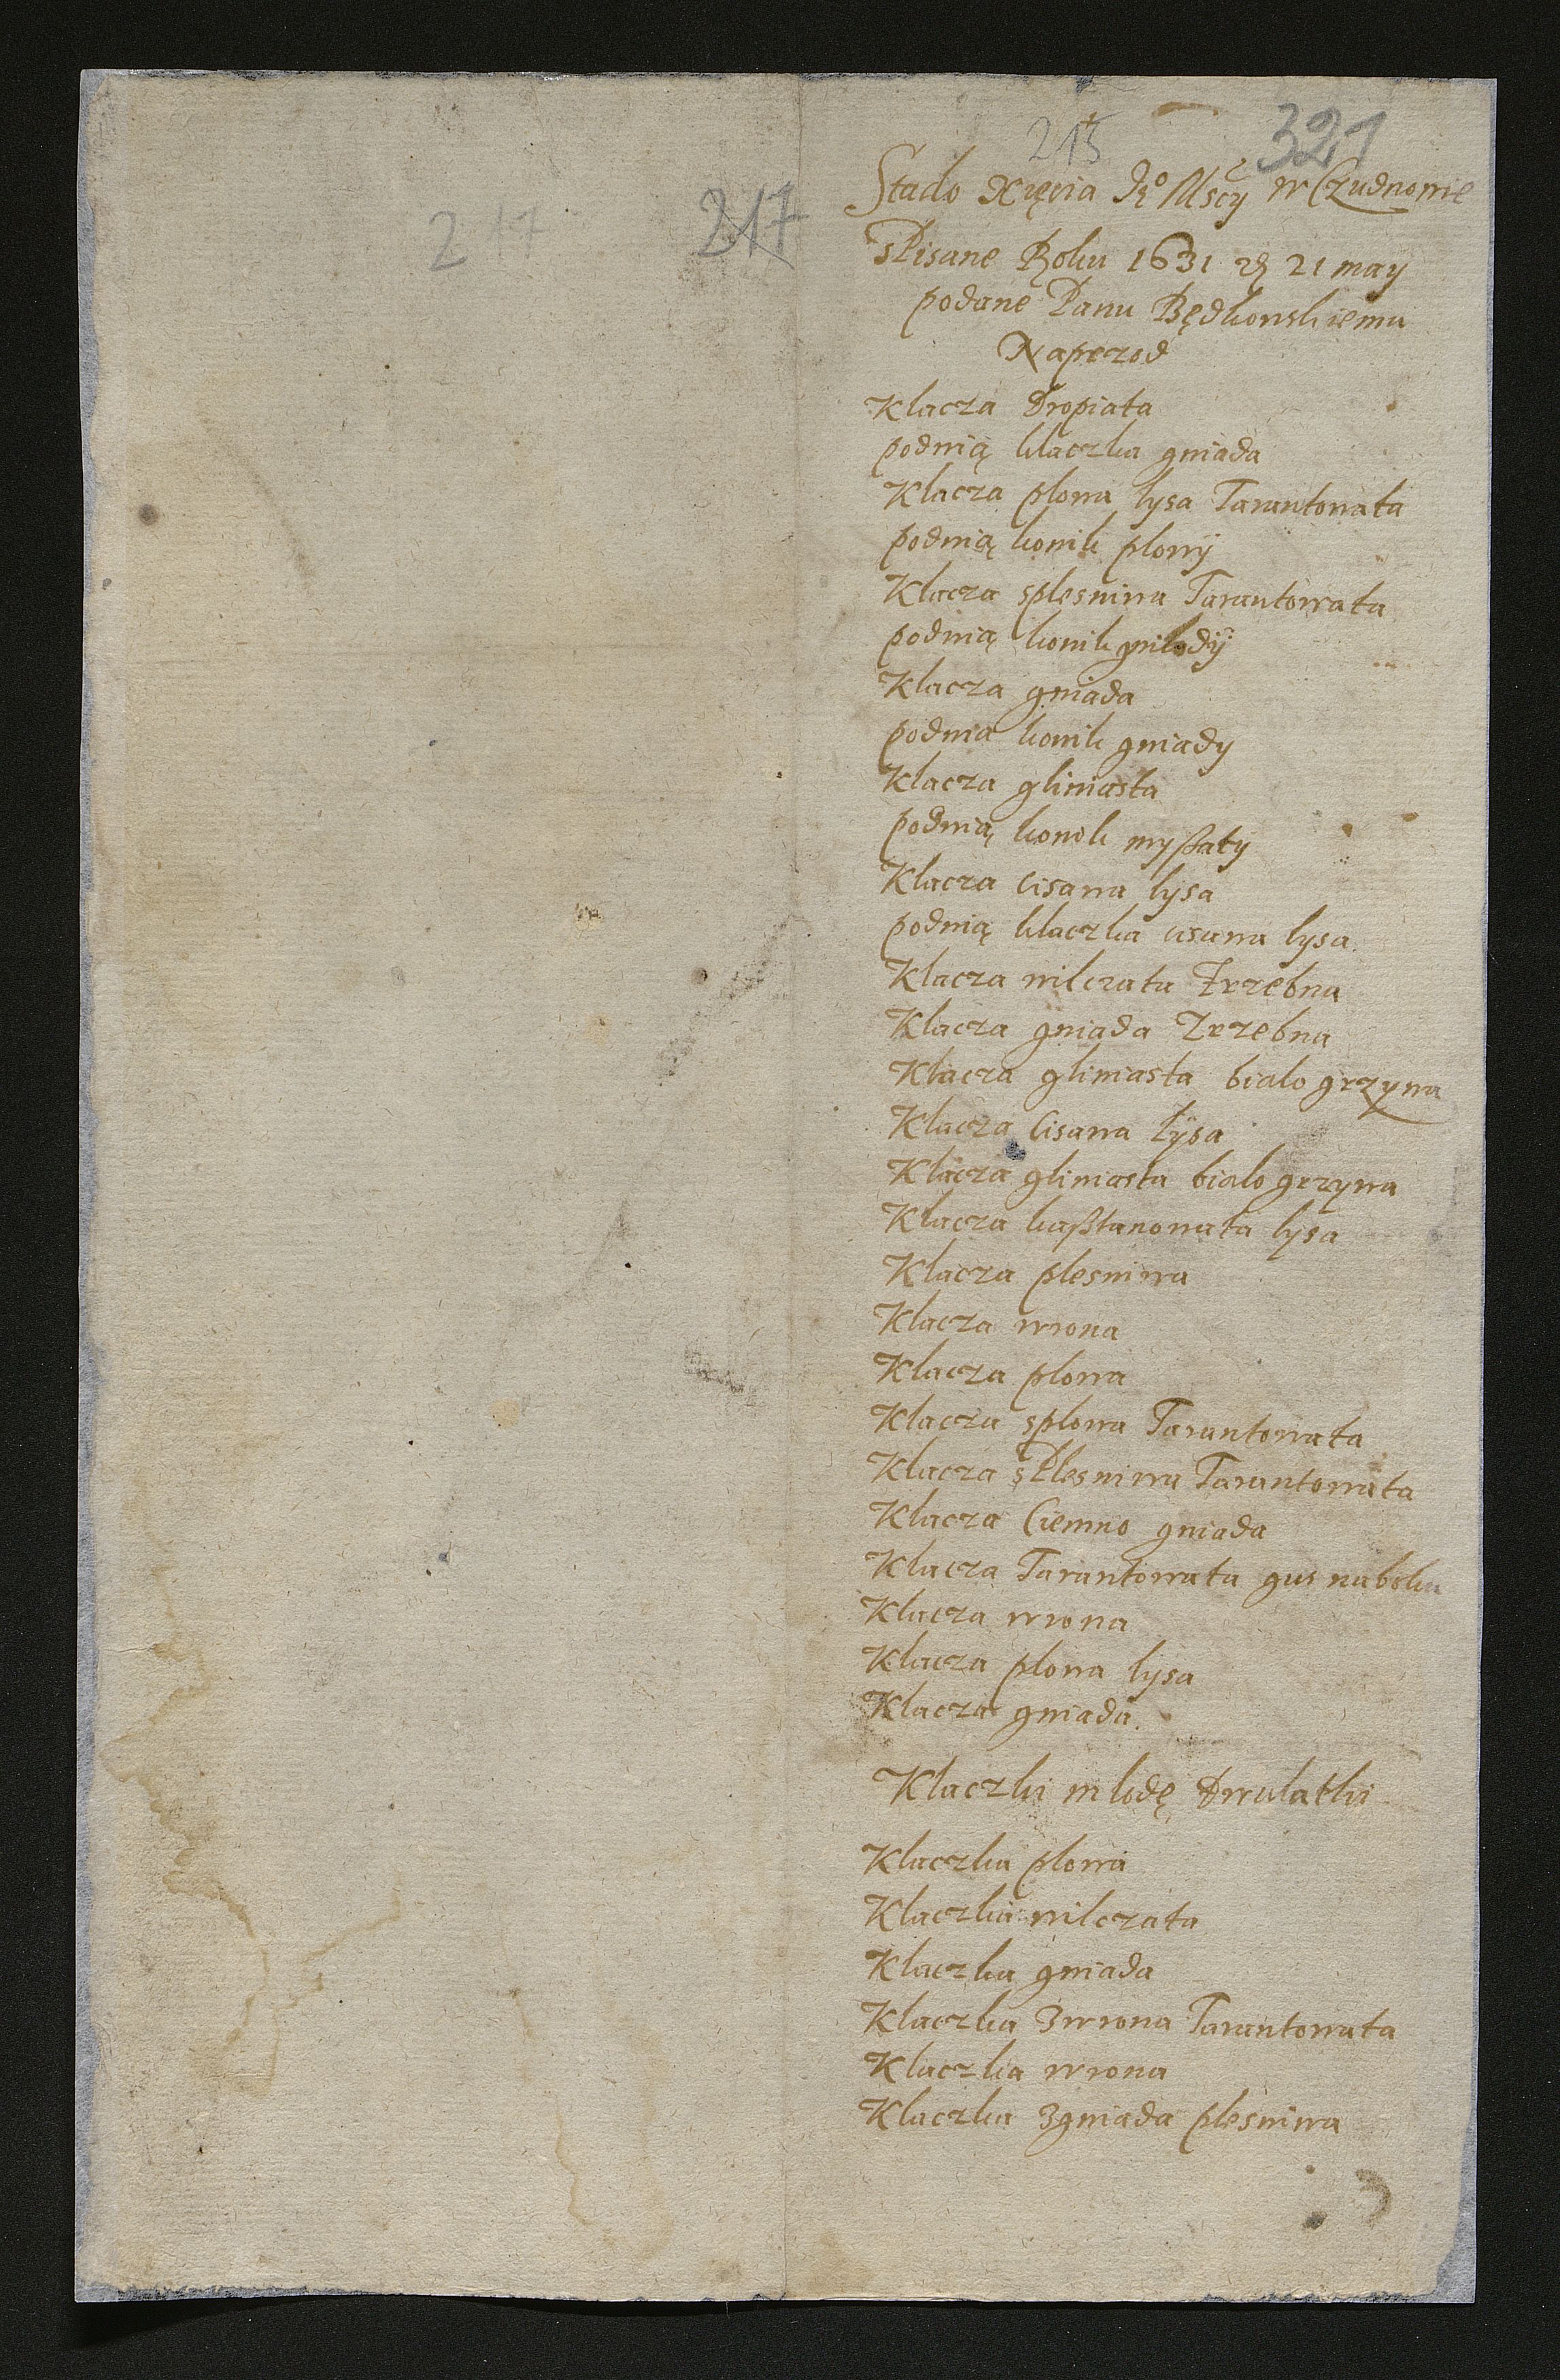 215 321
217 217
Stado Xięcia Je͞o Mści w Czudnowie
sPisane Roku 1631 21 may
podane Panu Będkowskiemu
Naprzod
Klacza Dropiata
podnią klaczka gniada
Klacza plowa lysa Tarantowata
podnią konik plowÿ
Klacza splesniwa Tarantowata
podnią konik
Klacza gniada
podnia konik gniady
Klacza gliniasta
podnią konik myßaty
Klacza cisawa lysa
podnią klaczka cisawa lysa
Klacza wilczata Zrzebna
Klacza gniada Zrzebna
Klacza gliniasta bialo grzywa
Klacza Cisawa Łysa
Klacza gliniasta bialo grzywa
Klacza kaßtanowata lysa
Klacza plesniwa
Klacza wrona
Klacza plowa
Klacza splowa Tarantowata
Klacza sPlesniwa Tarantowata
Klacza Ciemno gniada
Klacza Tarantowata guz naboku
Klacza wrona
Klacza plowa lysa
Klacza gniada
Klaczki mlodę Dwulatki
Klaczka plowa
Klaczka wilczata
Klaczka gniada
Klaczka Zwrona Tarantowata
Klaczka wrona
Klaczka Zgniada plesniwa